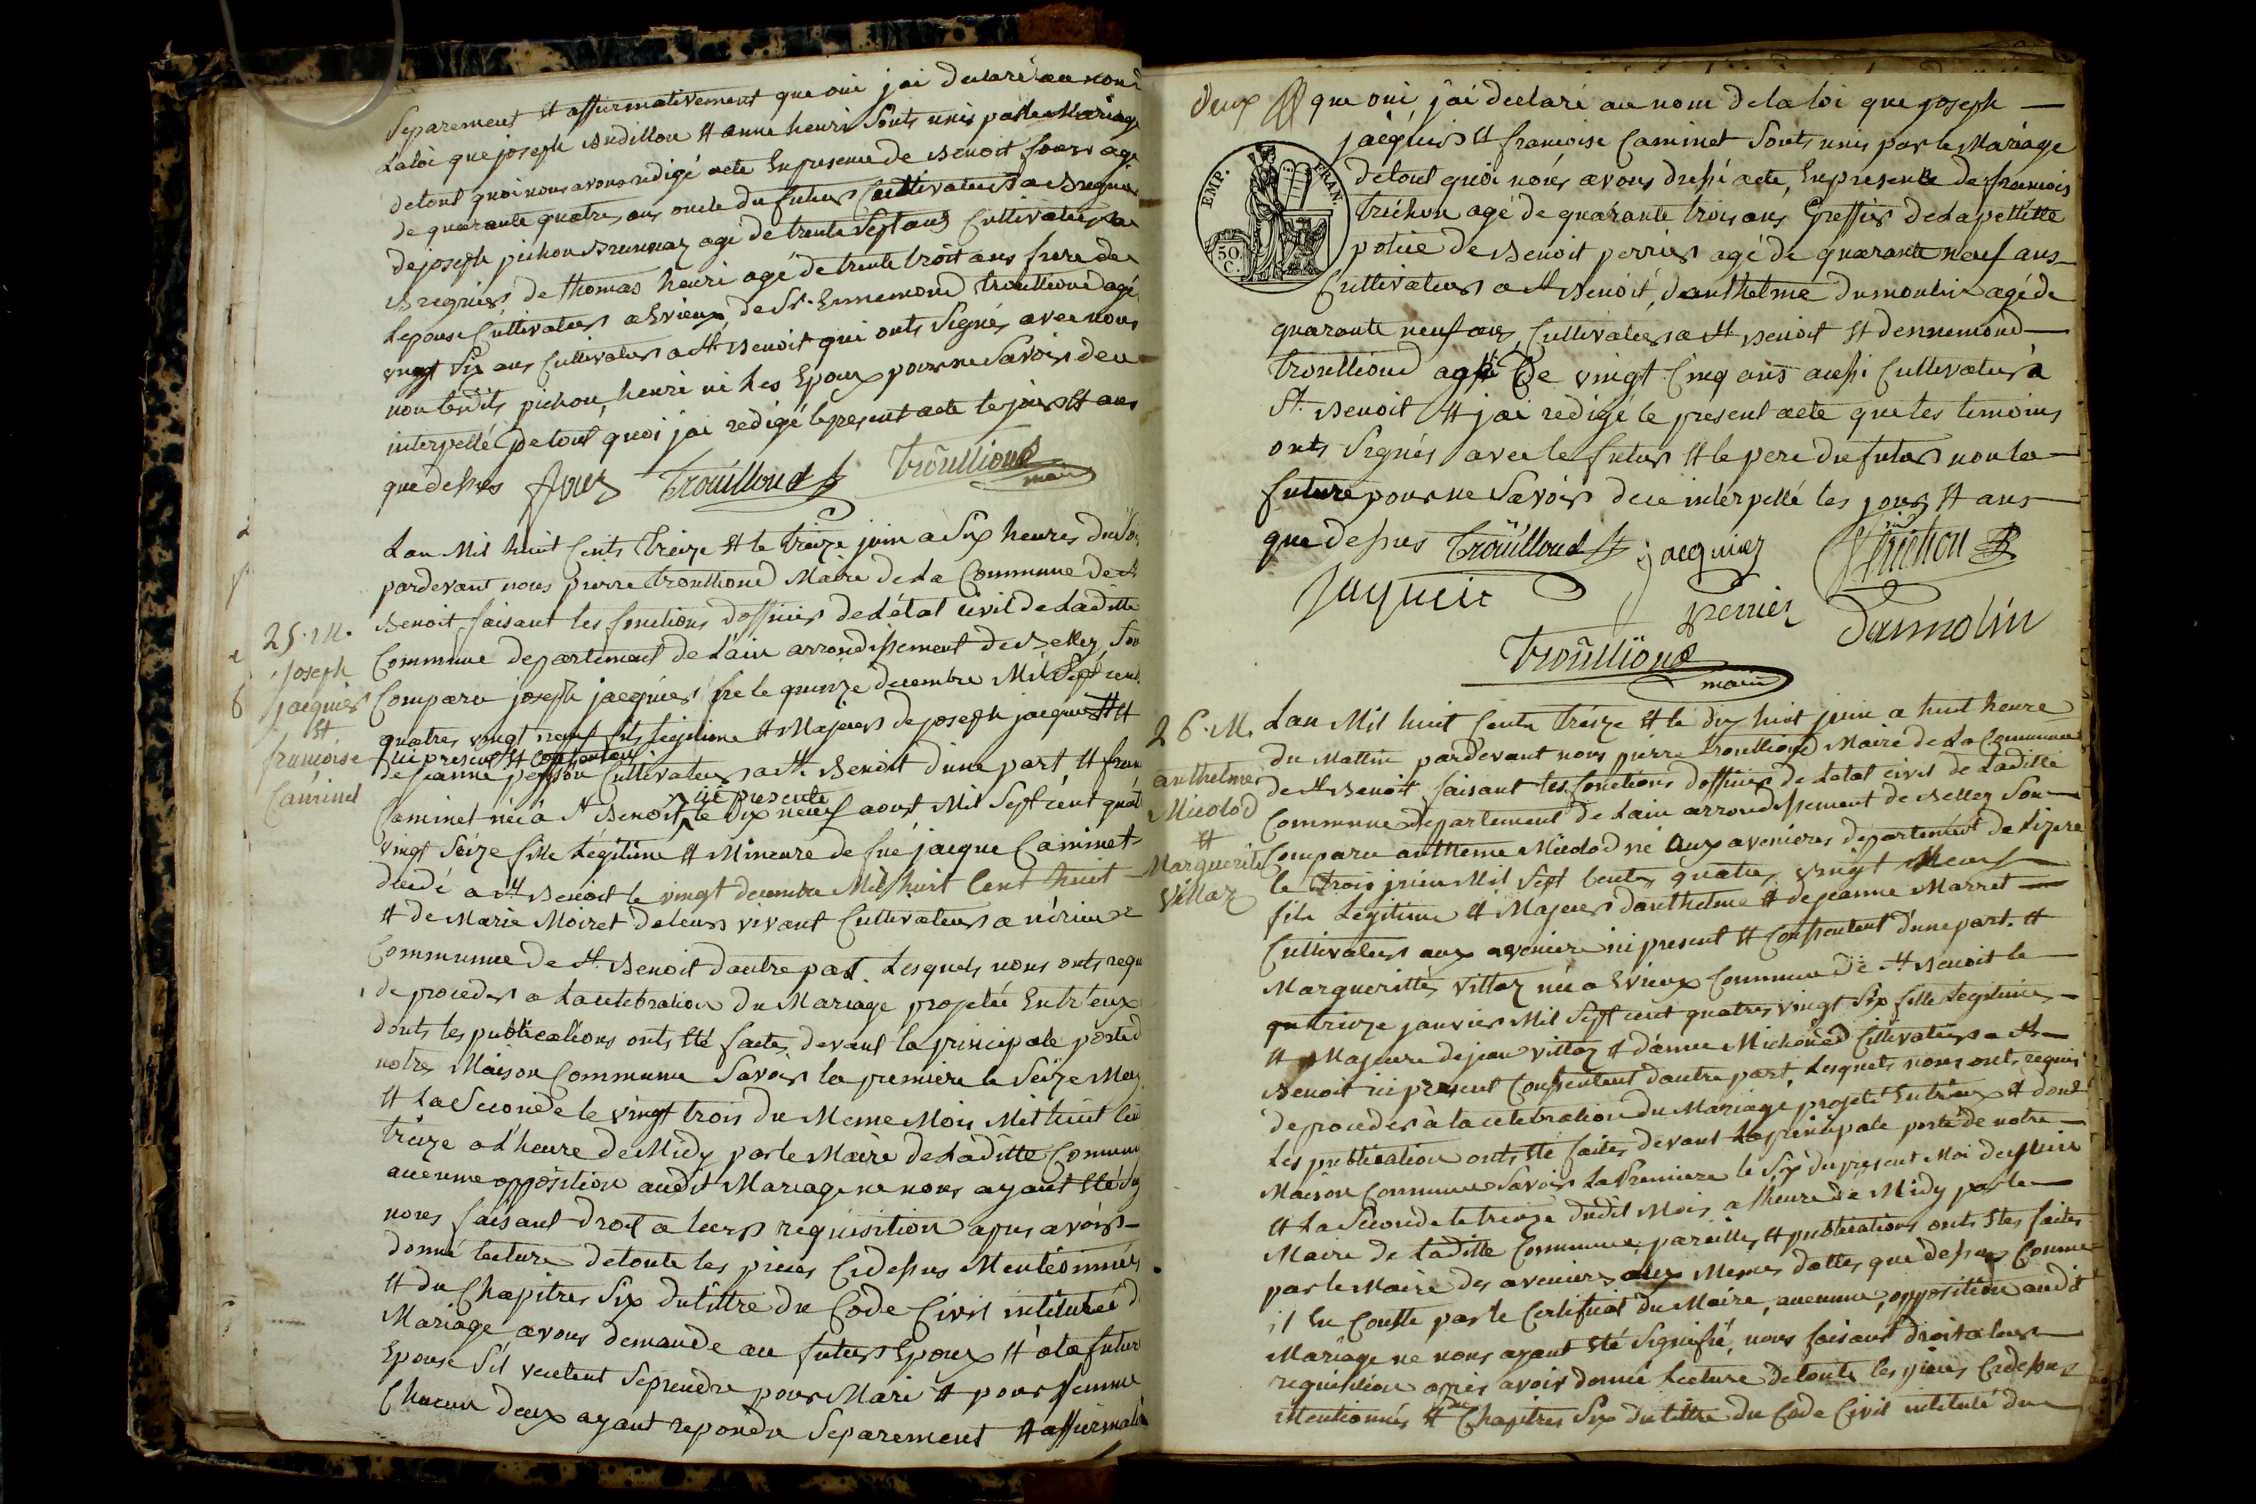 Separement et affirmativement que oui jai declaré au nom d
Laloi que joseph Audillon et anne henri Sonts unis par le Mariage
detout quoi nous avons redigé acte Enpresence de Benoit agé
de quarante quatre ans oncle du futur Cultivateur a Bregnier
de joseph pichon Brunnaz agé de trente Sept ans Cultivateur a
Bregnier de thomas henri agé de trente trois ans frere de
Lepouse Cultivateur a Evieux de St. Ennemond Trouilloud agé
vingt Six ans Cultivateur a St Benoit qui onts Signés avec nous
non lesdits pichon, henri ni Les Epoux pour ne Savoir dece
interpellé Detout quoi jai redigé lepresent acte le jour et ans
que dessus Trouilloud Trouilloud
maire
Lan Mil huit Cents Treize et le treize juin a Six heures du Soi
pardevant nous pierre trouilloud Maire de La Commune de St
Benoit faisant les fonctions dofficier de Létat civil de Laditte
25. M.
Joseph
jacquier
et
françoise
Caminet
Commune departement de Lain arrondissement de Belley Son
Comparu joseph jacquier né le quinze decembre Mil Sept cent
quatres vingt neuf fils Légitime et Majeur de joseph jacquier et
ici present et Consentent
de jeanne Cultivateur a St. Benoit dune part et fran
ici presente
Caminet née à St Benoit le Dix neuf aout Mil Sept cent quat
vingt Seize fille Légitime et Mineure de feu jacque Caminet
decedé a St Benoit le vingt decembre Mil huit Cent huit
et de Marie Moiret deleur vivant Cultivateur a
Commune de St. Benoit dautre part. Lesquels nous onts requ
de proceder a La celebration du Mariage projetée Entreeux
donts les publications onts Eté faites devant la principale porte d
notre Maison Commune Savoir la premiere le Seize May
et La Seconde le vingt trois du Meme Mois Mil huit Cen
treize a L'heure de Midy par le Maire de Laditte Commun
aucunne opposition audit Mariage ne nous ayant Eté Sig
nous faisant droit a leur requisition apres avoir
donné lecture detoute les pieces Cidessus Mentionnés
et du Chapitre Six dutittre du Code Civil intitulée d
Mariage avons demande au futur Epoux et à la futur
Epouse Sil veulent Seprendre pour Mari et pour femme
Chacun deux ayant repondu Separement et affirmati
deux que oui j'ai declaré au nom de la loi que joseph
jacquier et françoise Caminet Sonts unis par le Mariage
EMP. FRAN.
50 C.
detout quoi nous avons dressé acte, Enpresence de françois
Trichon agé de quarante trois ans Greffier de La pettitte
police de Benoit perrier agé de quarante neuf ans
Cultivateur a St Benoit, danthelme dumoulin agé de
quarante neuf ans, Cultivateur a St Benoit et dennemond
trouilloud agé De vingt Cinq ans aussi Cultivateur à
St. Benoit et jai redigé le present acte que les temoins
onts Signés avec le futur et le pere du futur non la
future pour ne Savoir dece interpellé les jour et ans
que dessus Trouilloud jacquier Trichon
Jaquier perrier Dumolin
Trouilloud
maire
26. M.
anthelme
Micolod
et
Marguerite
Villaz
Lan Mil huit Cents treize et le dix huit juin a huit heure
du Mattin pardevant nous pierre trouilloud Maire de La Commune
de St Benoit faisant les fonctions dofficier de Letat civil de Laditte
Commune departement de Lain arrondissement de Belley Son
Comparu antheme Micolod né aux avenieres departement de Lizere
le trois juin Mil Sept Cents quatres vingt Neuf
fils Legitime et Majeur danthelme et de jeanne Marret
Cultivateur aux aveniere ici present et Consentent dune part. et
Margueritte Villaz née a Evieux Commune de St Benoit le
treize janvier Mil Sept cent quatres vingt Six fille Legitime
et Majeure de jean villaz et d'anne Michoud Cultivateur a St
Benoit ici present Consentent dautre part, Lesquels nous onts requis
de proceder à la celebration du Mariage projeté Entreeux et dont
Les publication onts Eté faites devant La principale porte de notre
Maison Commune Savoir La Premiere le Six du present Moi de juin
et La Seconde le treize dudit Mois a lheure de Midy par le
Maire de Laditte Commune, pareilles et publications onts Etes faites
par le Maire des avenieres aux Memes dattes que dessus Comme
il En Conste par le Certificat du Maire, aucunne, opposition audit
Mariage ne nous ayant Eté Signifié, nous faisant droit a leur
requisition apres avoir donné Lecture detoute les pieces Cidessus
Mentionnés et du Chapitre Six du tittre du Code Civil intitulé du